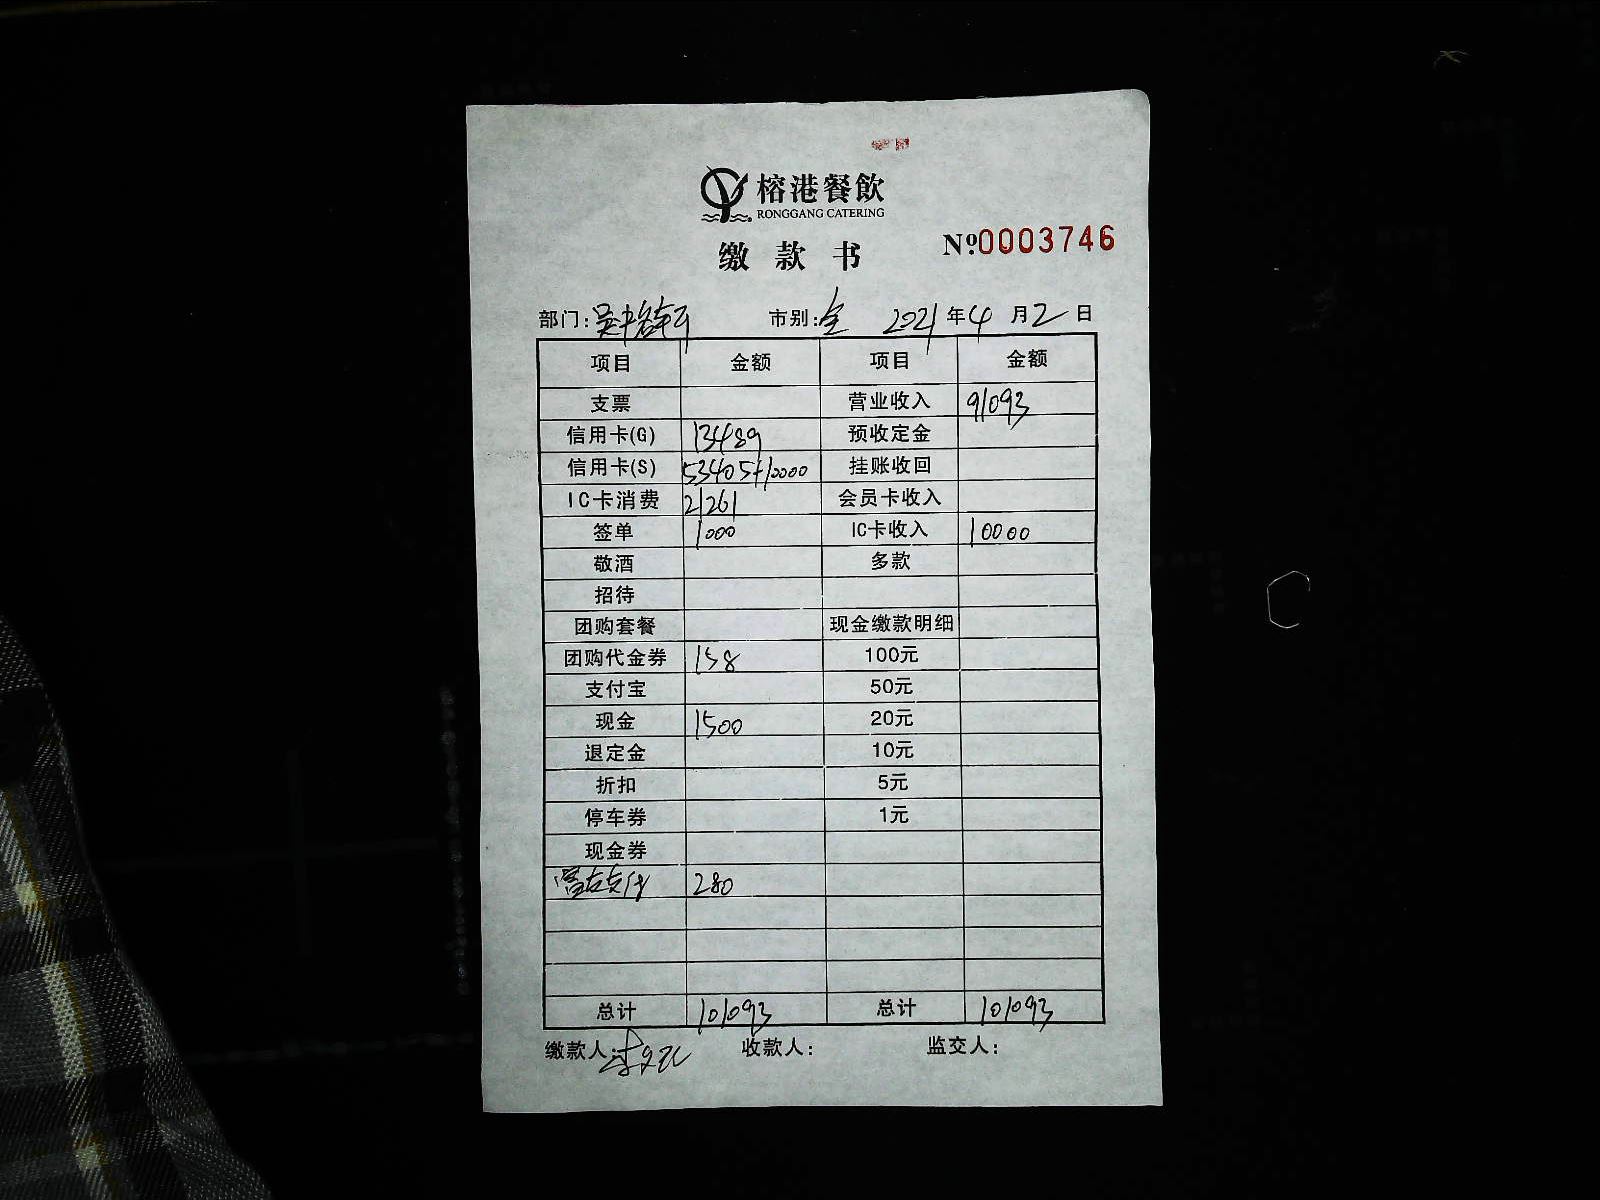 榕港餐飲
RONGGANG CATERING
缴款书 №0003746
部门: 市别:全 2021年4月2日
项目 金额 项目 金额
支票 营业收入 91093
信用卡(G) 13489 预收定金
信用卡(S) 53405+10000 挂账收回
IC卡消费 21261 会员卡收入
签单 1000 IC卡收入 10000
敬酒 多款
招待
团购套餐 现金缴款明细
团购代金券 158 100元
支付宝 50元
现金 1500 20元
退定金 10元
折扣 5元
停车券 1元
现金券
支付 280
总计 101093 总计 101093
缴款人: 收款人: 监交人: